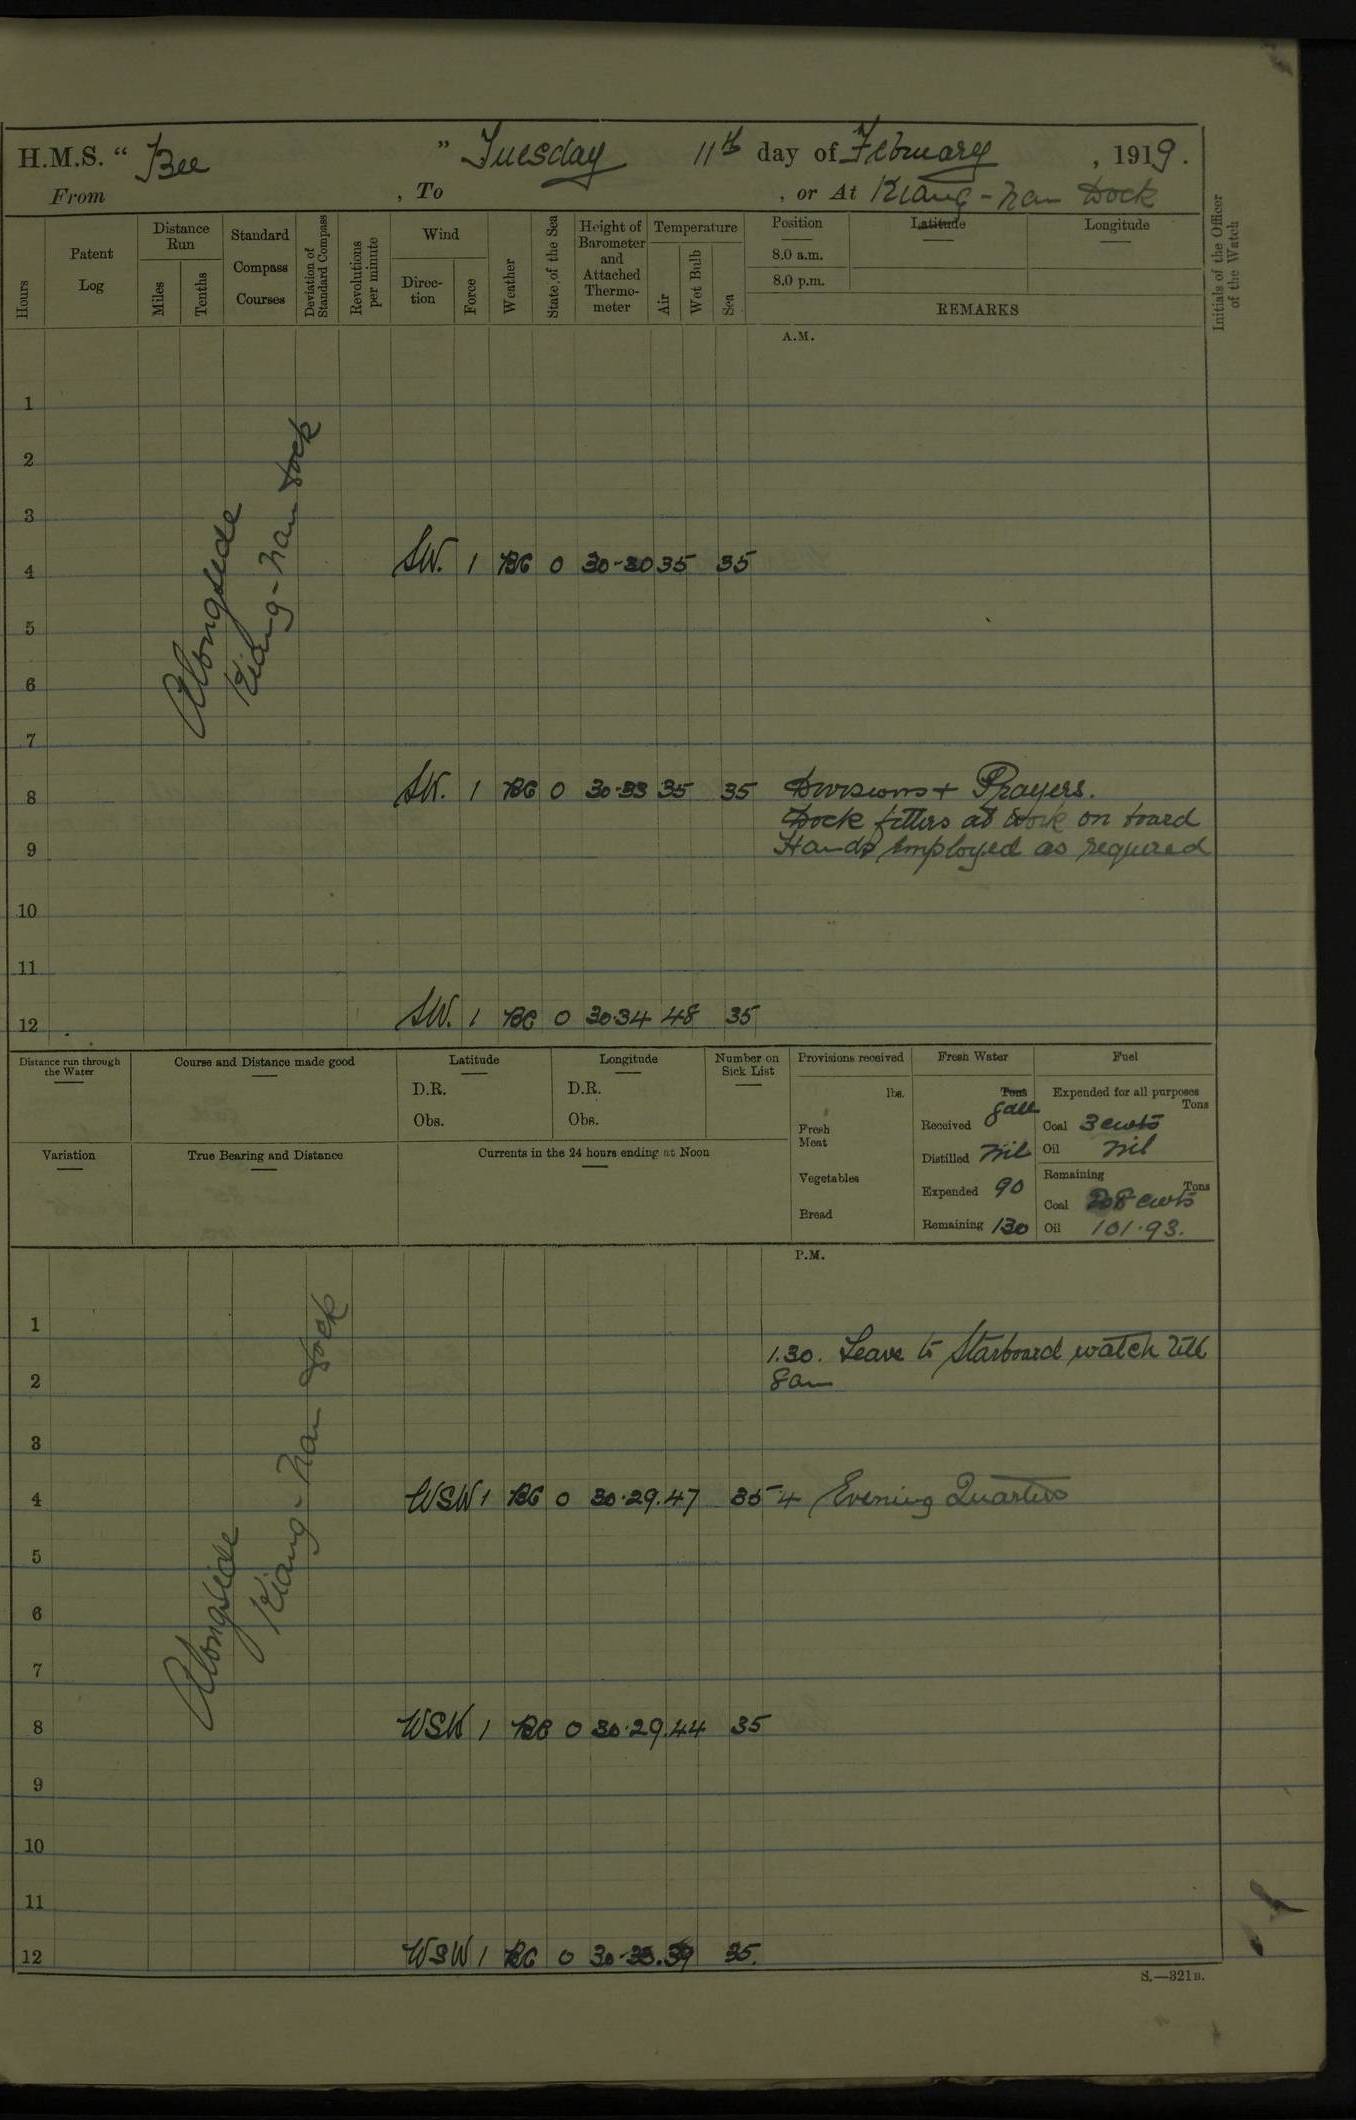 H.M.S. “ Bee ” Tuesday 11th day of February , 1919.
From , To , or At Kiang-Nan Dock
Hours
Patent Log
Distance Run
Miles
Tenths
Standard Compass Courses
Deviation of Standard Compass
Revolutions per minute
Wind
Direction
Force
Weather
State of the Sea
Height of Barometer and Attached Thermometer
Temperature
Air
Wet Bulb
Sea
Position
8.0 a.m.
8.0 p.m.
Latitude
Longitude
REMARKS
Initials of the Officer of the Watch
A.M.
Alongside
Kiang-Nan Dock
1
2
3
4 SW. 1 BC 0 30-30 35 35
5
6
7
8 SW. 1 BC 0 30.33 35 35 Divisions + Prayers.
Dock fitters at work on board
9 Hands employed as required
10
11
12 SW. 1 BC 0 30.34 48 35
Distance run through the Water
Course and Distance made good
Latitude
D.R.
Obs.
Longitude
D.R.
Obs.
Number on Sick List
Variation
True Bearing and Distance
Currents in the 24 hours ending at Noon
Provisions received
lbs.
Fresh Meat
Vegetables
Bread
Fresh Water
Tons
Galls
Received
Distilled Nil
Expended 90
Remaining 130
Fuel
Expended for all purposes
Tons
Coal 3 cwts
Oil Nil
Remaining
Tons
Coal 208 cwts
Oil 101.93.
P.M.
Alongside
Kiang-Nan Dock
1
1.30. Leave to Starboard watch till
2 8am
3
4 WSW 1 BC 0 30.29.47 35 4 Evening Quarters
5
6
7
8 WSW 1 BC 0 30.29.44 35
9
10
11
12 WSW 1 BC 0 30-33.39 35.
S.—321B.